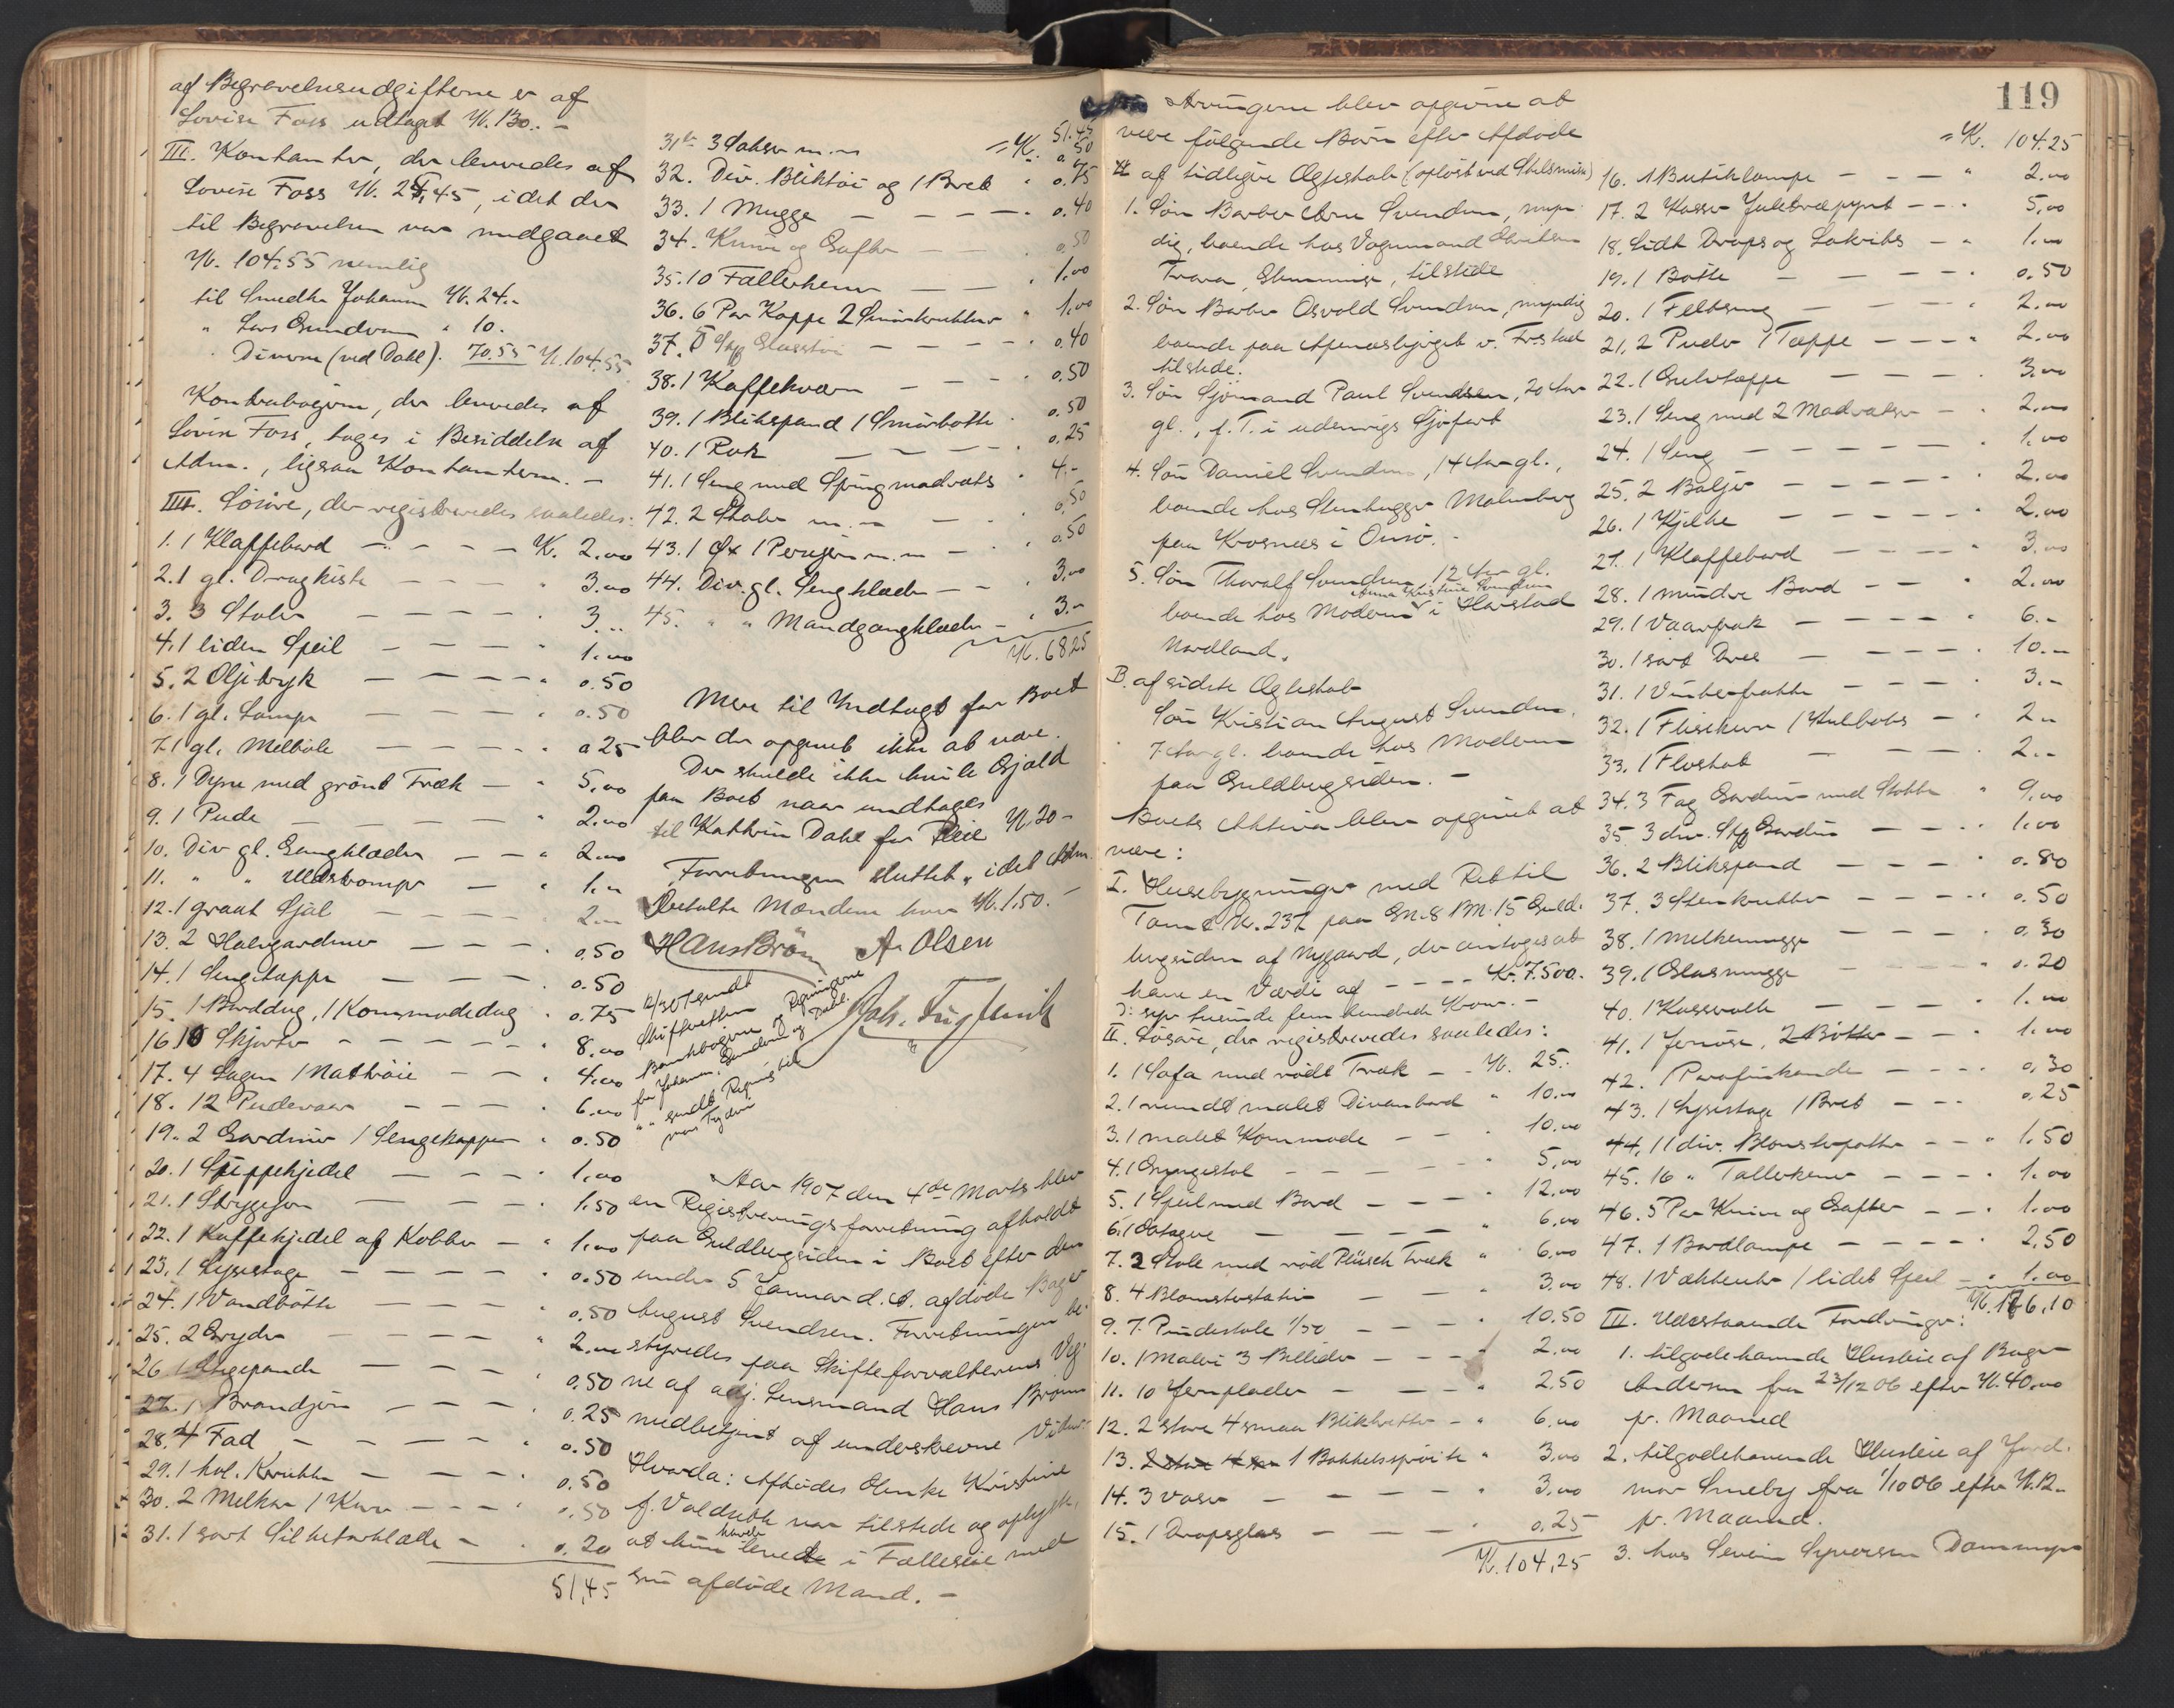 af Begravelsesudgifterne er af
Lovise Foss udtaget Kr. 130. -
III. Kontanter, der leveredes af
Lovise Foss Kr. 25,45, idet der
til Begravelsen var medgaaet
Kr. 104.55 nemlig
til Snedker Johansen Kr. 24.-
" Lars Gundersen " 10.
Diverse (ved Dahl). 70.55 Kr. 104.55
Kontrabøgerne, der leveredes af
Lovise Foss, tages i Besiddelse af
Adm., ligesaa Kontanterne. -
IIII. Løsøre, der registreredes saaledes:
1. 1 Klaffebord - - - - Kr. 2.00
2. 1 gl. Dragkiste - - - " 3.00
3. 3 Stoler - - - - " 3...
4. 1 liden Speil - - - " 1.00
5. 2 Oljetryk - - - - " 0.50
6. 1 gl. Lampe - - - " 0.50
7. 1 gl. Melbøle - - - " 0.25
8. 1 Dyne med grønt Træk - " 5,00
9. 1 Pude - - - - " 2.00
10. Div gl. Gangklæder - - " 2.00
11. " " Uldstrømper - " 1.-
12. 1 graat Sjal - - - - 2.-
13. 2 Halvgardiner - - - . 0.50
14. 1 Sengetæppe - - - . 0.50
15. 1 Borddug, 1 Kommodedug . 0.75
16. 10 Skjorter - - - - " 8.00
17. 4 Lagen 1 Nattrøie - - . 4.00
18. 12 Pudevaar - - - . 6.00
19. 2 Gardiner 1 Sengekappe " 0.50
20. 1 Suppekjedel - - - " 1.00
21. 1 Strygejern - - - " 1.50
22. 1 Kaffekjedel af Kobber - " 1.00
23. 1 Lysestage - - - - . 0.50
24. 1 Vandbøtte - - - . 0.50
25. 2 Gryder - - - - " 2.00
26. 1 Stegepande - - - . 0.50
27. 1 Brandjern - - - . 0.25
28. 4 Fad - - - - " 0.50
29. 1 hol. Krukke - - - . 0.50
30. 2 Melkar 1 Kurv - - - . 0.50
31. 1 sort Silketørklæde - . 0.20
51,45
51.45
31b 3 Sakser m.m = Kr. 0.50
32. Div. Bliktøi og 1 Bret " 0.75
33. 1 Mugge - - - - . 0.40
34. Knive og Gafler - - . 0.50
35. 10 Tallerkener - - . 1.00
36. 6 Par Kopper 2 Smørkrukker " 1.00
37. 5 Stk Glasstøi - - - . 0.40
38. 1 Kaffekværn - - - . 0.50
39. 1 Blikspand 1 Smørbøtte . 0.50
40. 1 Rok - - - . 0.25
41. 1 Seng med Springmadrats . 4.-
42. 2 Stoler m.m - - . 0,50
43. 1 Øx 1 m.m - . 0.50
44. Div. gl. Sengklæder - - . 3.00
45. " " Mandgangklæder - . 3.-
Kr. 68.25
Mere til Indtægt for Boet
blev der opgivet ikke at være.
Der skulde ikke hvile Gjæld
paa Boet naar undtages
til Kathrine Dahl for Pleie Kr. 20 -
Forretningen sluttet, idet Adm.
betalte Mændene hver Kr. 1.50. -
Hans Brøm A. Olsen
12/3 07 sendt
Skifteretten
Bankbøgerne og Regningerne
fra Johansen, Gundersen og Dahl.
" " sendt
Aar 1907 den 4de Marts blev
en Registreringsforretning afholdt
paa Guldbergsiden i Boet efter den
under 5 Januar d.A. afdøde Bager
August Svendsen. Forretningen be-
styredes paa Skifteforvalterens Veg-
ne af adj. Lensmand Hans Brømm
medbetjent af underskrevne Vidner.
Hvorda: Afdødes Enke Kristine
f. Valdsæth var tilstede og oplyste,
at hun havde levet i Fælleseie med
sin afdøde Mand. -
119
Arvingerne blev opgivne at
være følgende Børn efter Afdøde
A af tidligere Ægteskab (opløst ved Skilsmisse)
1. Søn Barber Arne Svendsen, myn-
dig, boende hos Vognmand Christensen
Trara, Glemminge, tilstede
2. Søn Barber Osvald Svendsen, myndig
boende paa Apenæsbjerget v. Fr.stad
tilstede.
3. Søn Sjømand Paul Svendsen, 20 Aar
gl., f. T. i udenrigs Sjøfart
4. Søn Daniel Svendsen, 14 Aar gl.,
boende hos Stenhugger Malmberg
paa Krosnæs i Onsø. -
5. Søn Thoralf Svendsen, 12 Aar gl.
Anna Kristine Svendsen
boende hos Moderen i Harstad
Nordland.
B. af sidste Ægteskab
Søn Kristian August Svendsen,
7 Aar gl. boende hos Moderen
paa Guldbergsiden. -
Boets Aktiva blev opgivet at
være:
I. Husebygninger med Ret til
Tomt Nr. 237 paa Gn. 8 Bn. 15 Guld-
bergsiden af Nygaard, der antoges at
have en Værdi af - - - - Kr. 7.500.
ɔ: syv tusinde fem hundrede Kroner. -
II. Løsøre, der registreredes saaledes:
1. 1 Sofa med rødt Træk - . Kr. 25.-
2. 1 rundt malet Divanbord " 10.00
3. 1 malet Kommode - - . 10.00
4. 1 Gyngestol - - - - " 5.00
5. 1 Speil med Bord - - " 12.00
6. 1 Etagere - - - - " 6,00
7. 2 Stole med rød Plüsch Træk " 6.00
8. 4 Blomsterstativ - - " 3,00
9. 7 Pindestole 1/50 - - - . 10.50
10. 1 Maleri 3 Billeder - - - . 2.00
11. 10 Jernplader - - - " 2.50
12. 2 store 4 smaa Blikbretter - " 6.00
13. 1 Bakkelssprøite " 3,00
14. 3 Vaser - - - - " 3.00
15. 1 Dropsglas - - - . 0.25
Kr. 104,25
= Kr. 104.25
16. 1 Butiklampe - - - " 2.00
17. 2 Kasser Juletræpynt - - . 5,00
18. Lidt Drops og Lakrits - " 1.00
19. 1 Bøtte - - - - . 0.50
20. 1 Feltseng - - - - . 2.00
21. 2 Puder 1 Tæppe - - - " 2.00
22. 1 Gulvtæppe - - - . 3.00
23. 1 Seng med 2 Madratser - . 2.00
24. 1 Seng - - - - - . 1.00
25. 2 Baljer - - - - - . 2.00
26. 1 Kjelke - - - - - . 2.00
27. 1 Klaffebord - - - - . 3.00
28. 1 mindre Bord - - . 2.00
29. 1 Vaarfrak - - - - . 6.-
30. 1 sort Dres - - - - . 10.-
31. 1 Vinterfrakke - - - . 3.-
32. 1 Flisekurv 1 Kulboks - . 2.-
33. 1 Floshat - - - . 2.-
34. 3 Fag Gardiner med Stokke " 9,00
35. 3 div. Stk Gardiner - - - . 1.00
36. 2 Blikspand - - - - . 0.80
37. 3 Stenkrukker - - - . 0.50
38. 1 Melkemugge - - - . 0.30
39. 1 Glasmugge - - - . 0.20
40. 1 - - - . 1.00
41. 1 Jernøse, 2 Bøtter - - . 1.00
42. 1 Parafinkande - - - . 0,30
43. 1 Lysestage 1 Bret - - - . 0.25
44. 11 div. Blomsterpotter - - " 1.50
45. 16 " Tallerkener - - - . 1.00
46. 5 Par Knive og Gafler - - . 1.00
47. 1 Bordlampe - - - - . 2,50
48. 1 Vækkeuhr 1 lidet Speil - . 1.00
Kr. 176,10
III. Udestaaende Fordringer:
1. tilgodehavende Husleie af Bager
Andersen fra 23/12 06 efter Kr. 40,00
pr. Maaned
2. tilgodehavende Husleie af Jord-
mor Smeby fra 1/10 06 efter Kr. 12.-
pr. Maaned.
3. hos Severin Syversen Dammyr